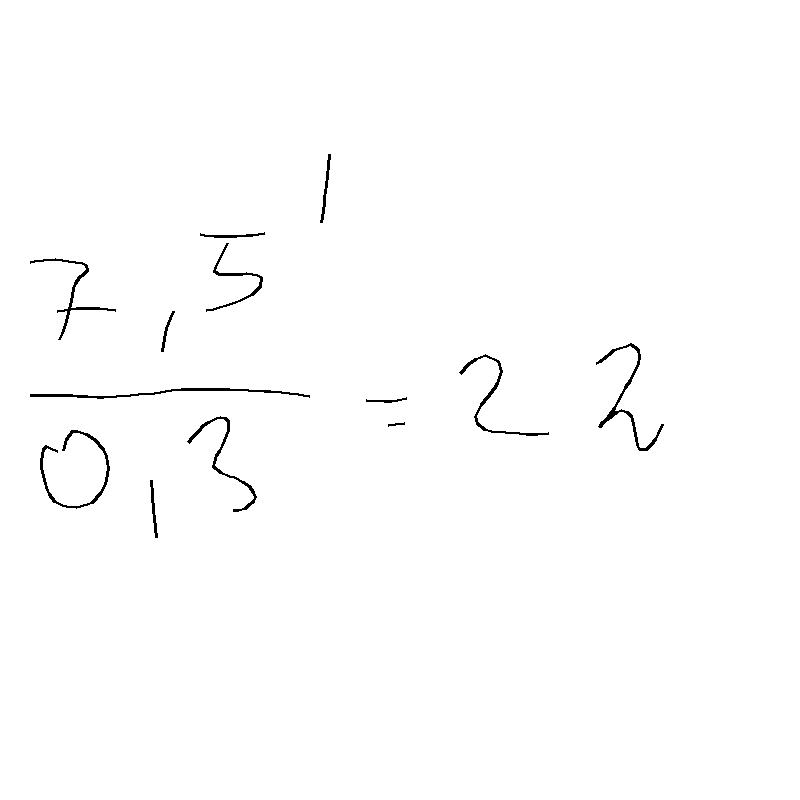 7,5
0,3 = 22